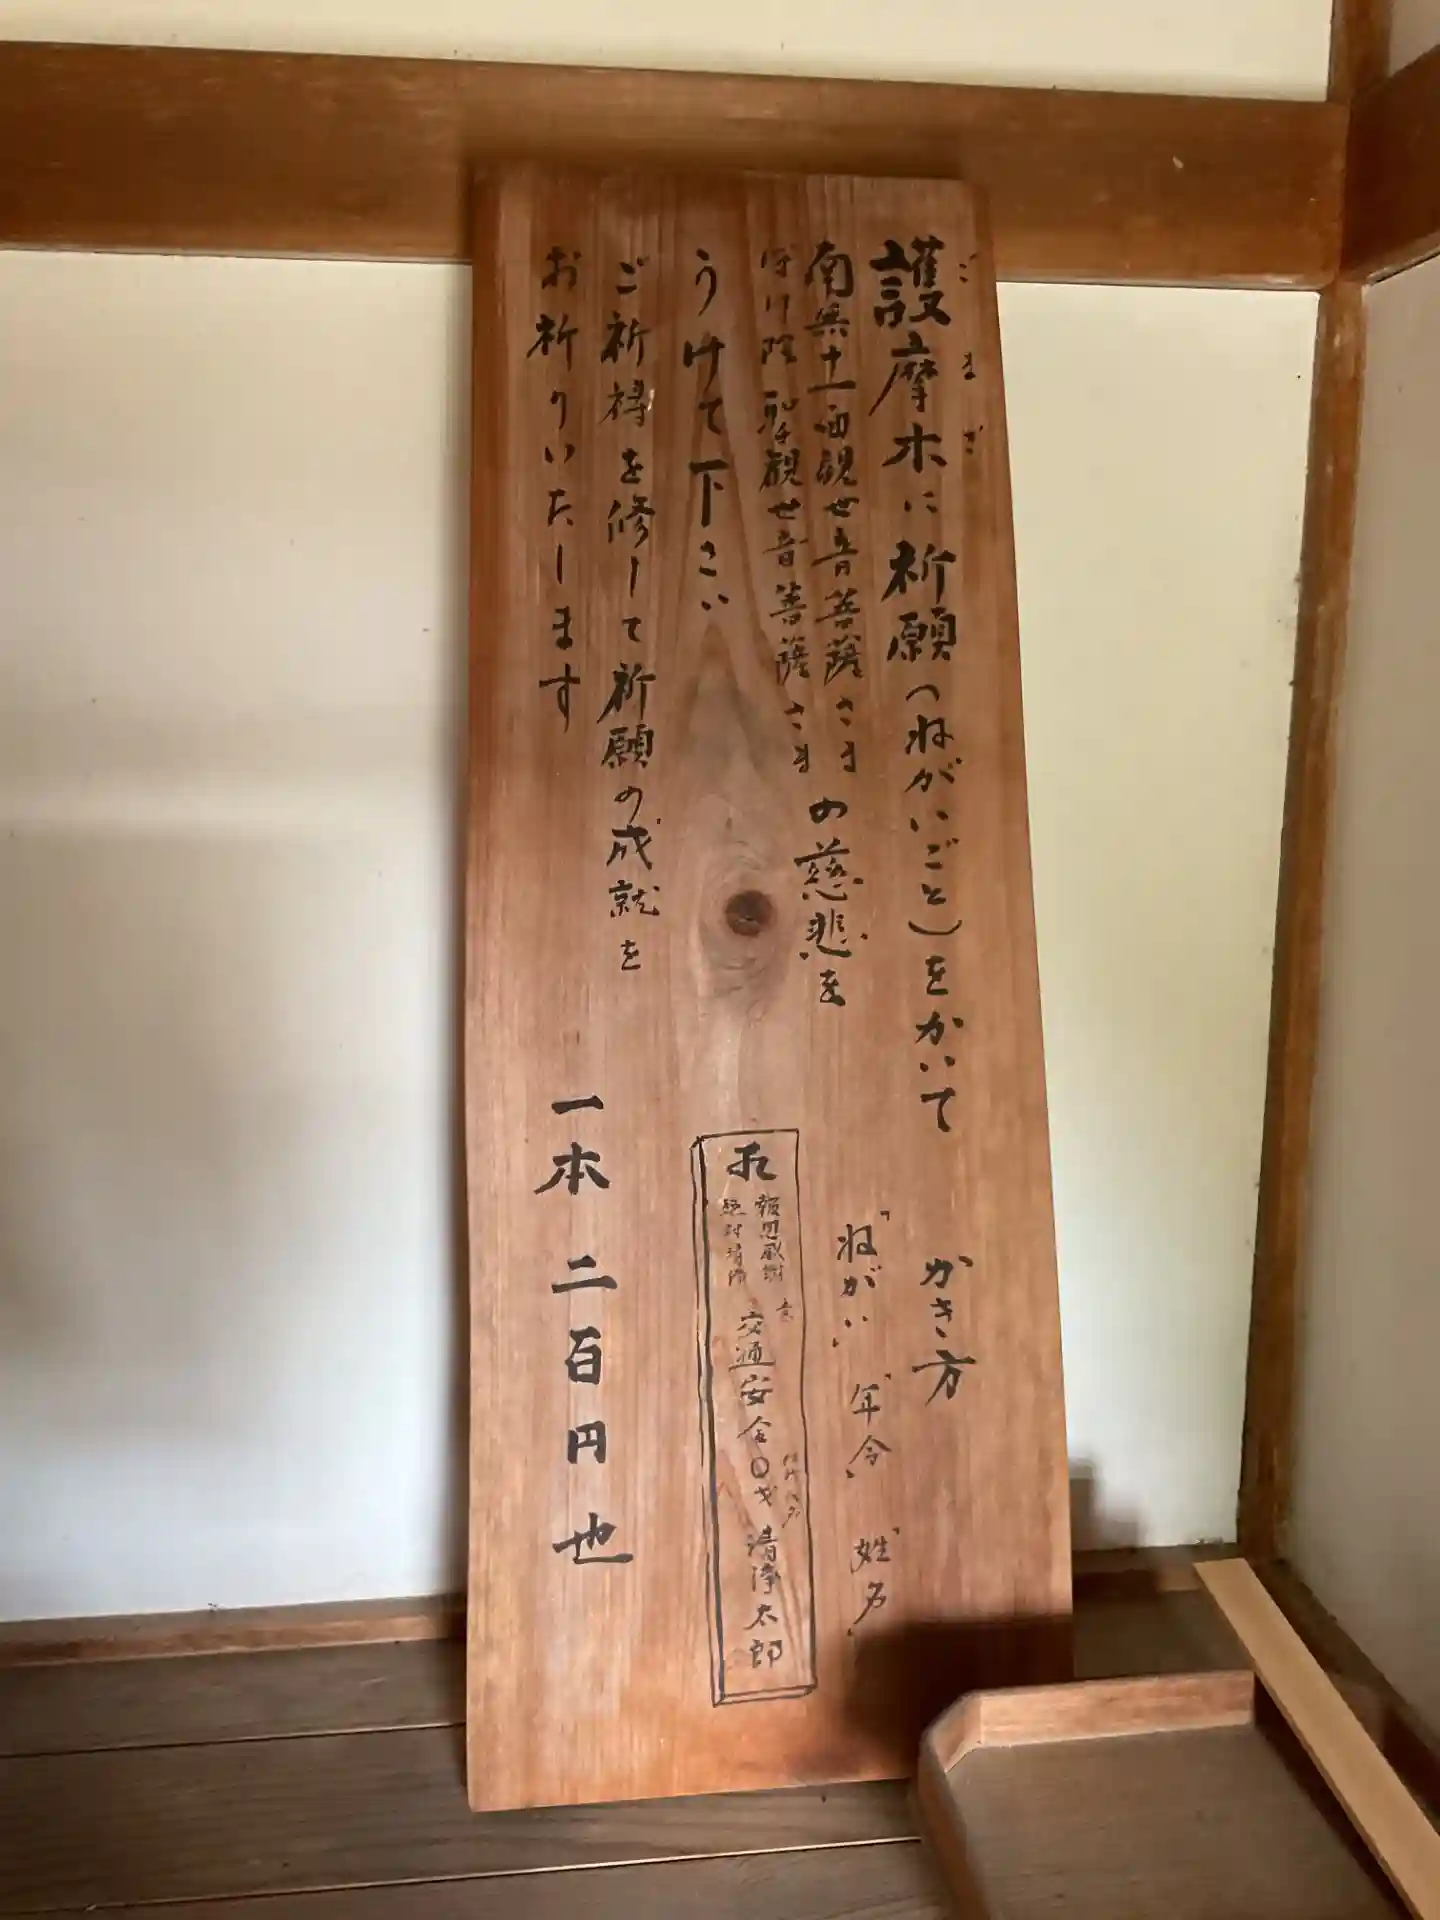 護摩木に祈願(ねがいごと)をかいて
ごまぎ
南無十一面観世音菩薩さま
聖観世音菩薩さま
の慈悲を
うけて下さい
ご祈祷を修して祈願の成就を
お祈りいたします
かき方
「ねがい」「年令」「姓名」
報恩感謝
交通安全〇才 清浄太郎
一本 二百円也